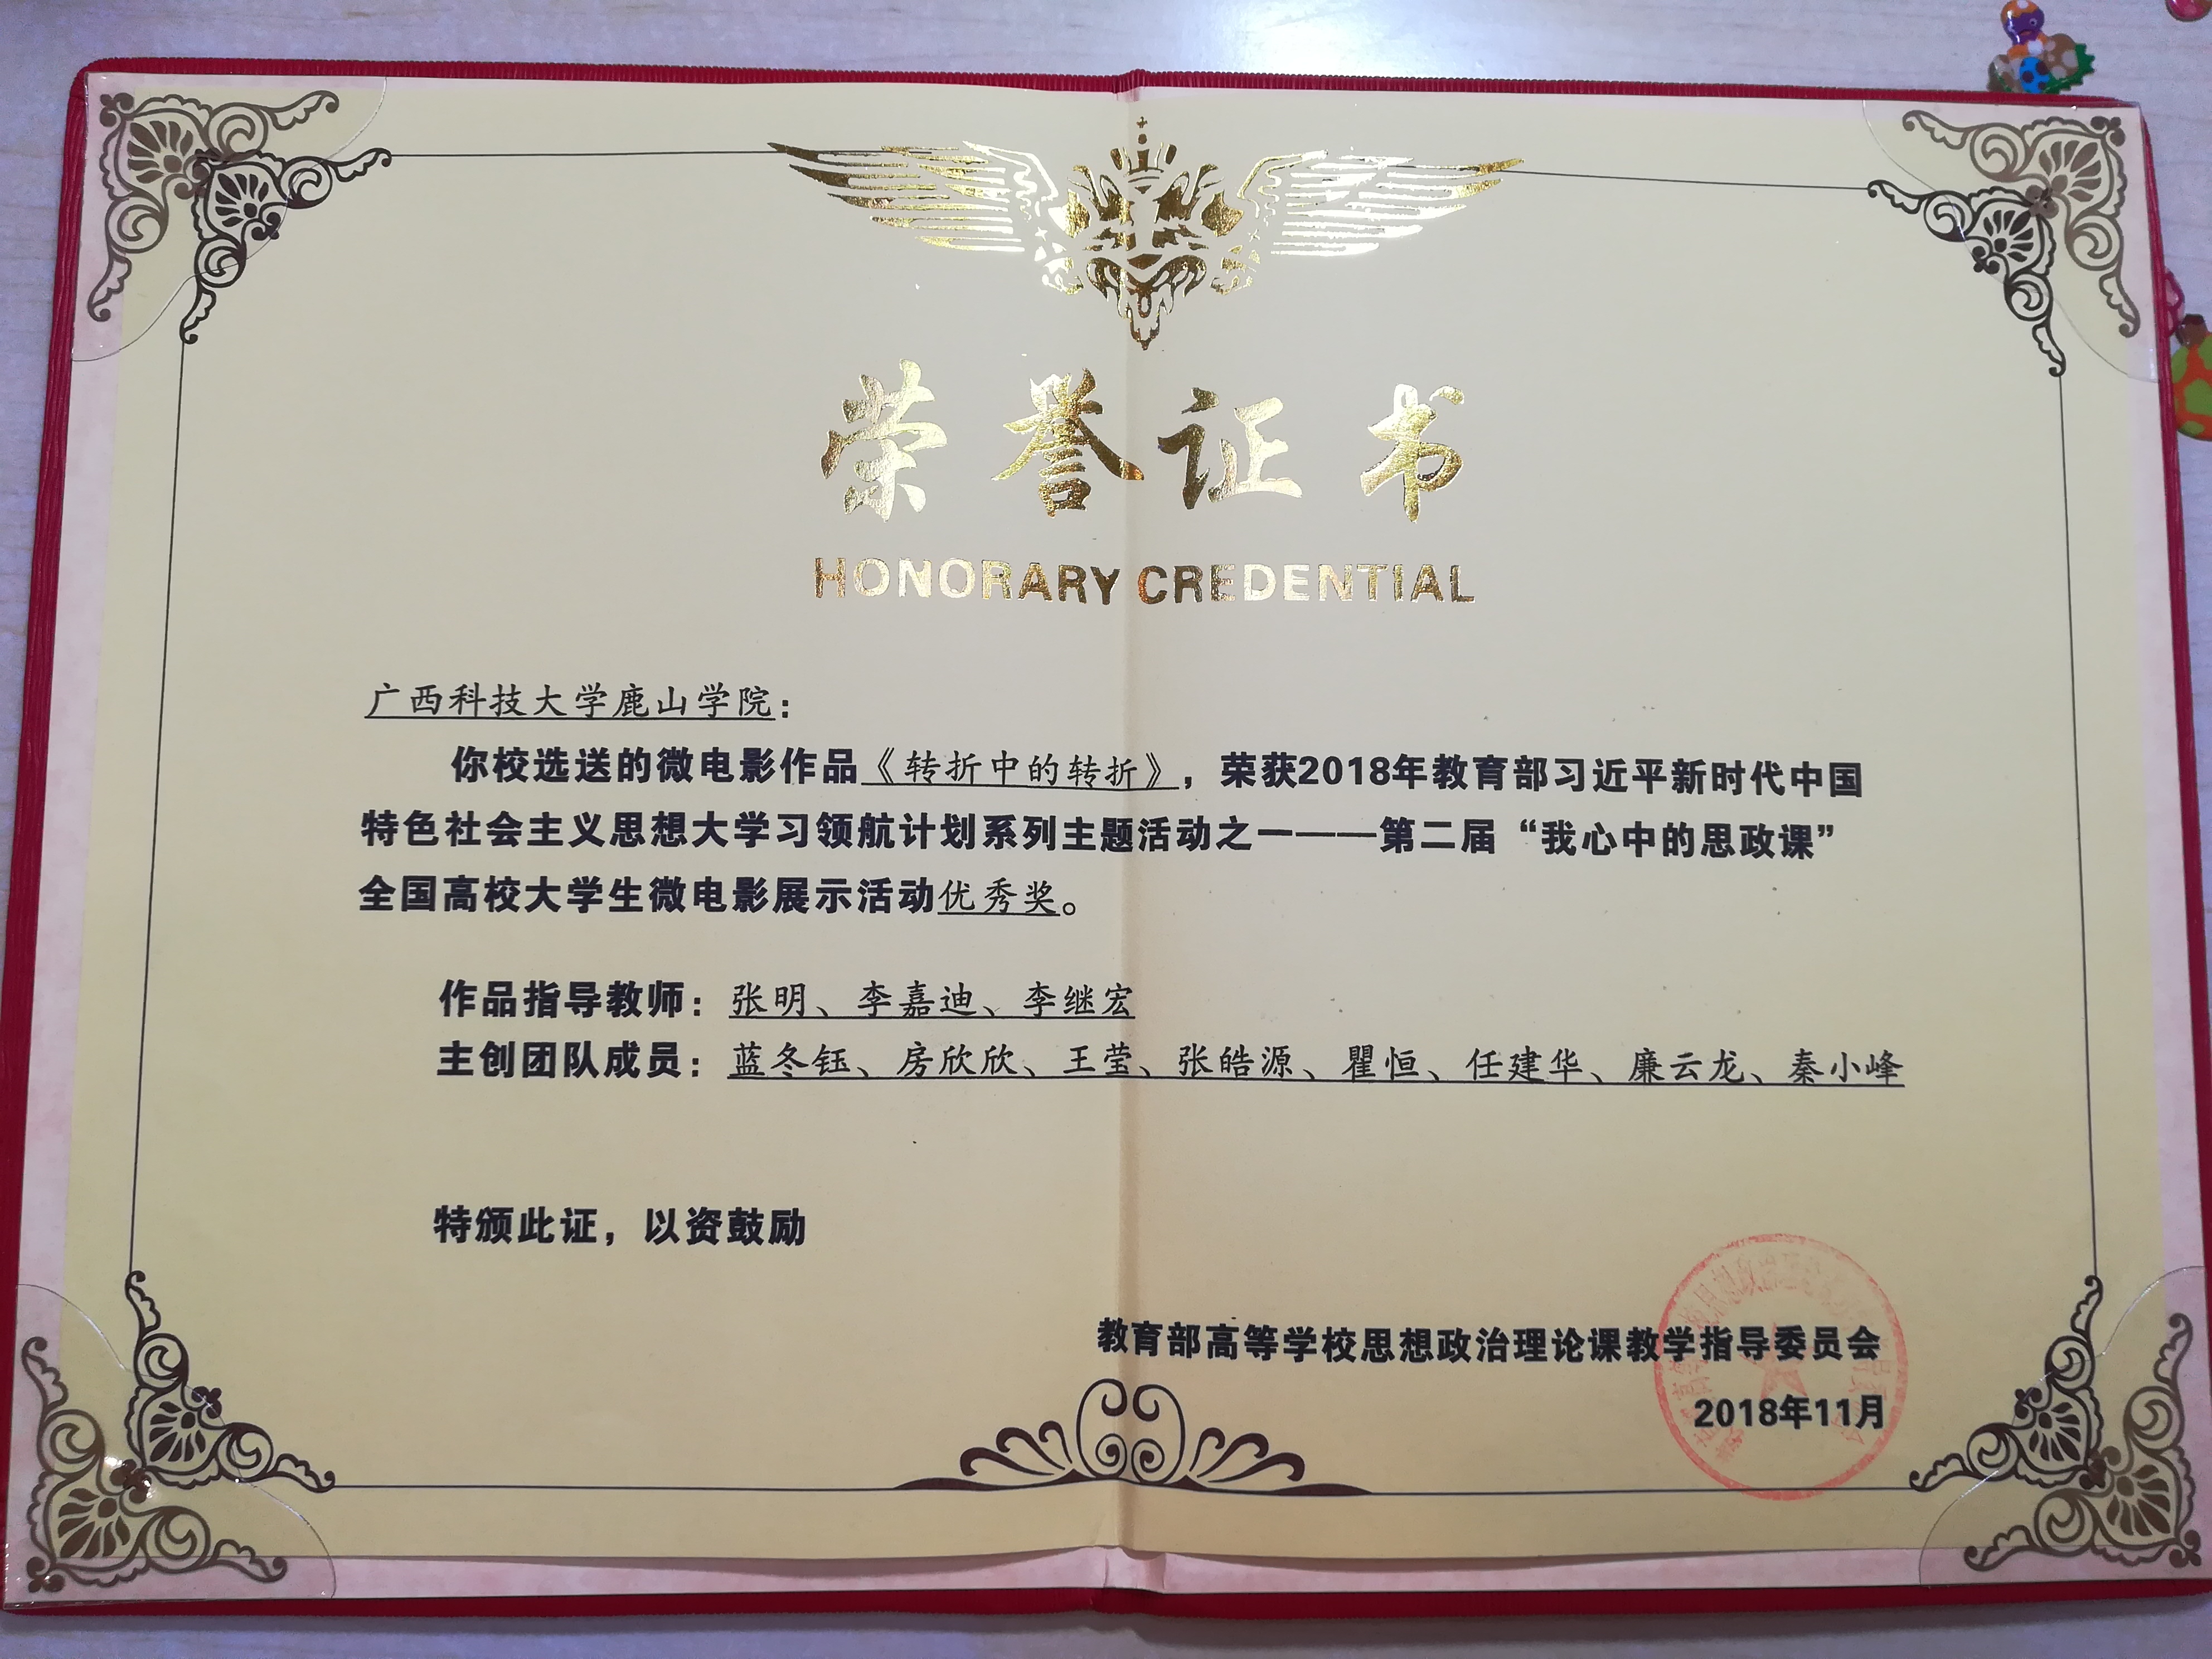 荣誉证书
HONORARY CREDENTIAL
广西科技大学鹿山学院：
你校选送的微电影作品《转折中的转折》，荣获2018年教育部习近平新时代中国
特色社会主义思想大学习领航计划系列主题活动之一———第二届“我心中的思政课”
全国高校大学生微电影展示活动优秀奖。
作品指导教师：张明、李嘉迪、李继宏
主创团队成员：蓝冬钰、房欣欣、王莹、张皓源、瞿恒、任建华、廉云龙、秦小峰
特颁此证，以资鼓励
教育部高等学校思想政治理论课教学指导委员会
2018年11月